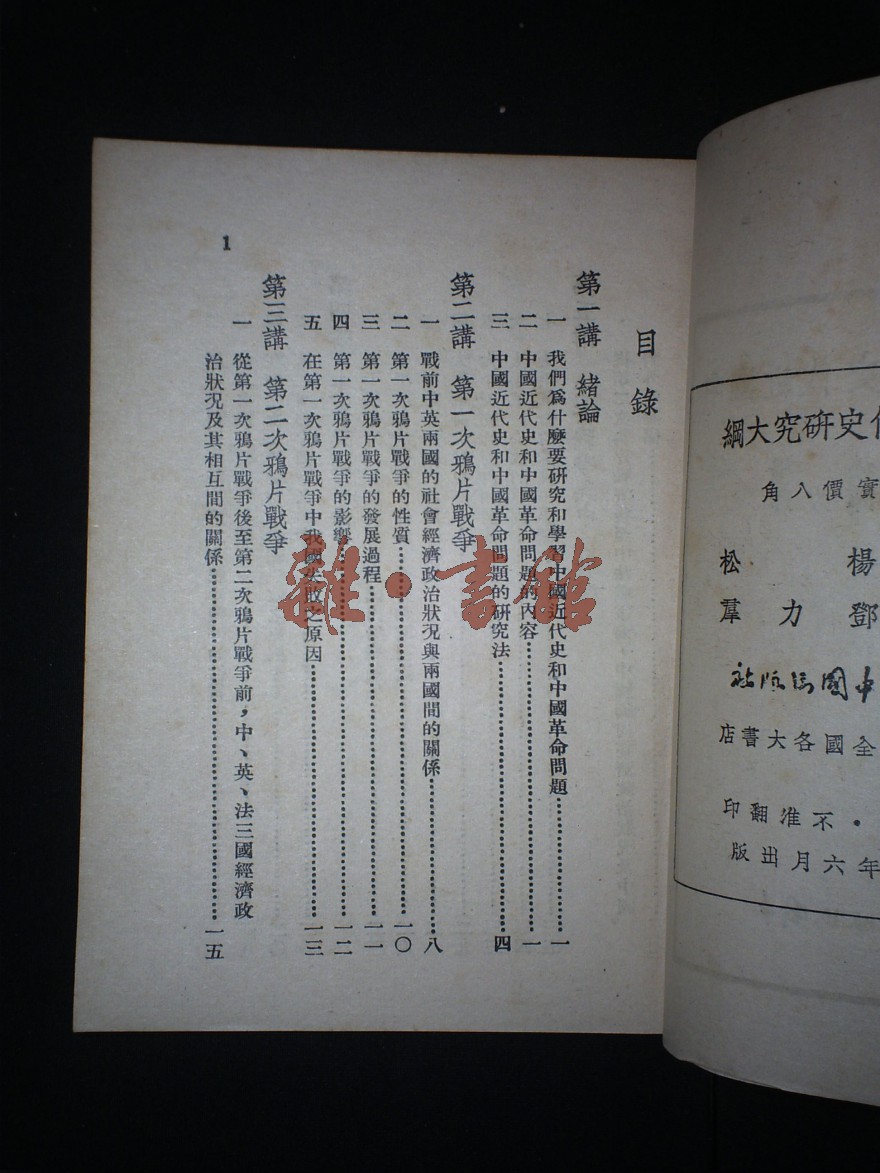 目錄
第一講 緒論
一 我們爲什麼要研究和學習中國近代史和中國革命問題……一
二 中國近代史和中國革命問題的內容……一
三 中國近代史和中國革命問題的研究法……四
第二講 第一次鴉片戰爭
一 戰前中英兩國的社會經濟政治狀況與兩國間的關係……八
二 第一次鴉片戰爭的性質……一〇
三 第一次鴉片戰爭的發展過程……一一
四 第一次鴉片戰爭的影響……一二
五 在第一次鴉片戰爭中我國失敗之原因……一三
第三講 第二次鴉片戰爭
一 從第一次鴉片戰爭後至第二次鴉片戰爭前，中、英、法三國經濟政
治狀況及其相互間的關係……一五
1
史研究大綱
實價八角
楊松
鄧力羣
中國出版社
全國各大書店
不准翻印
年六月出版
雜·書館